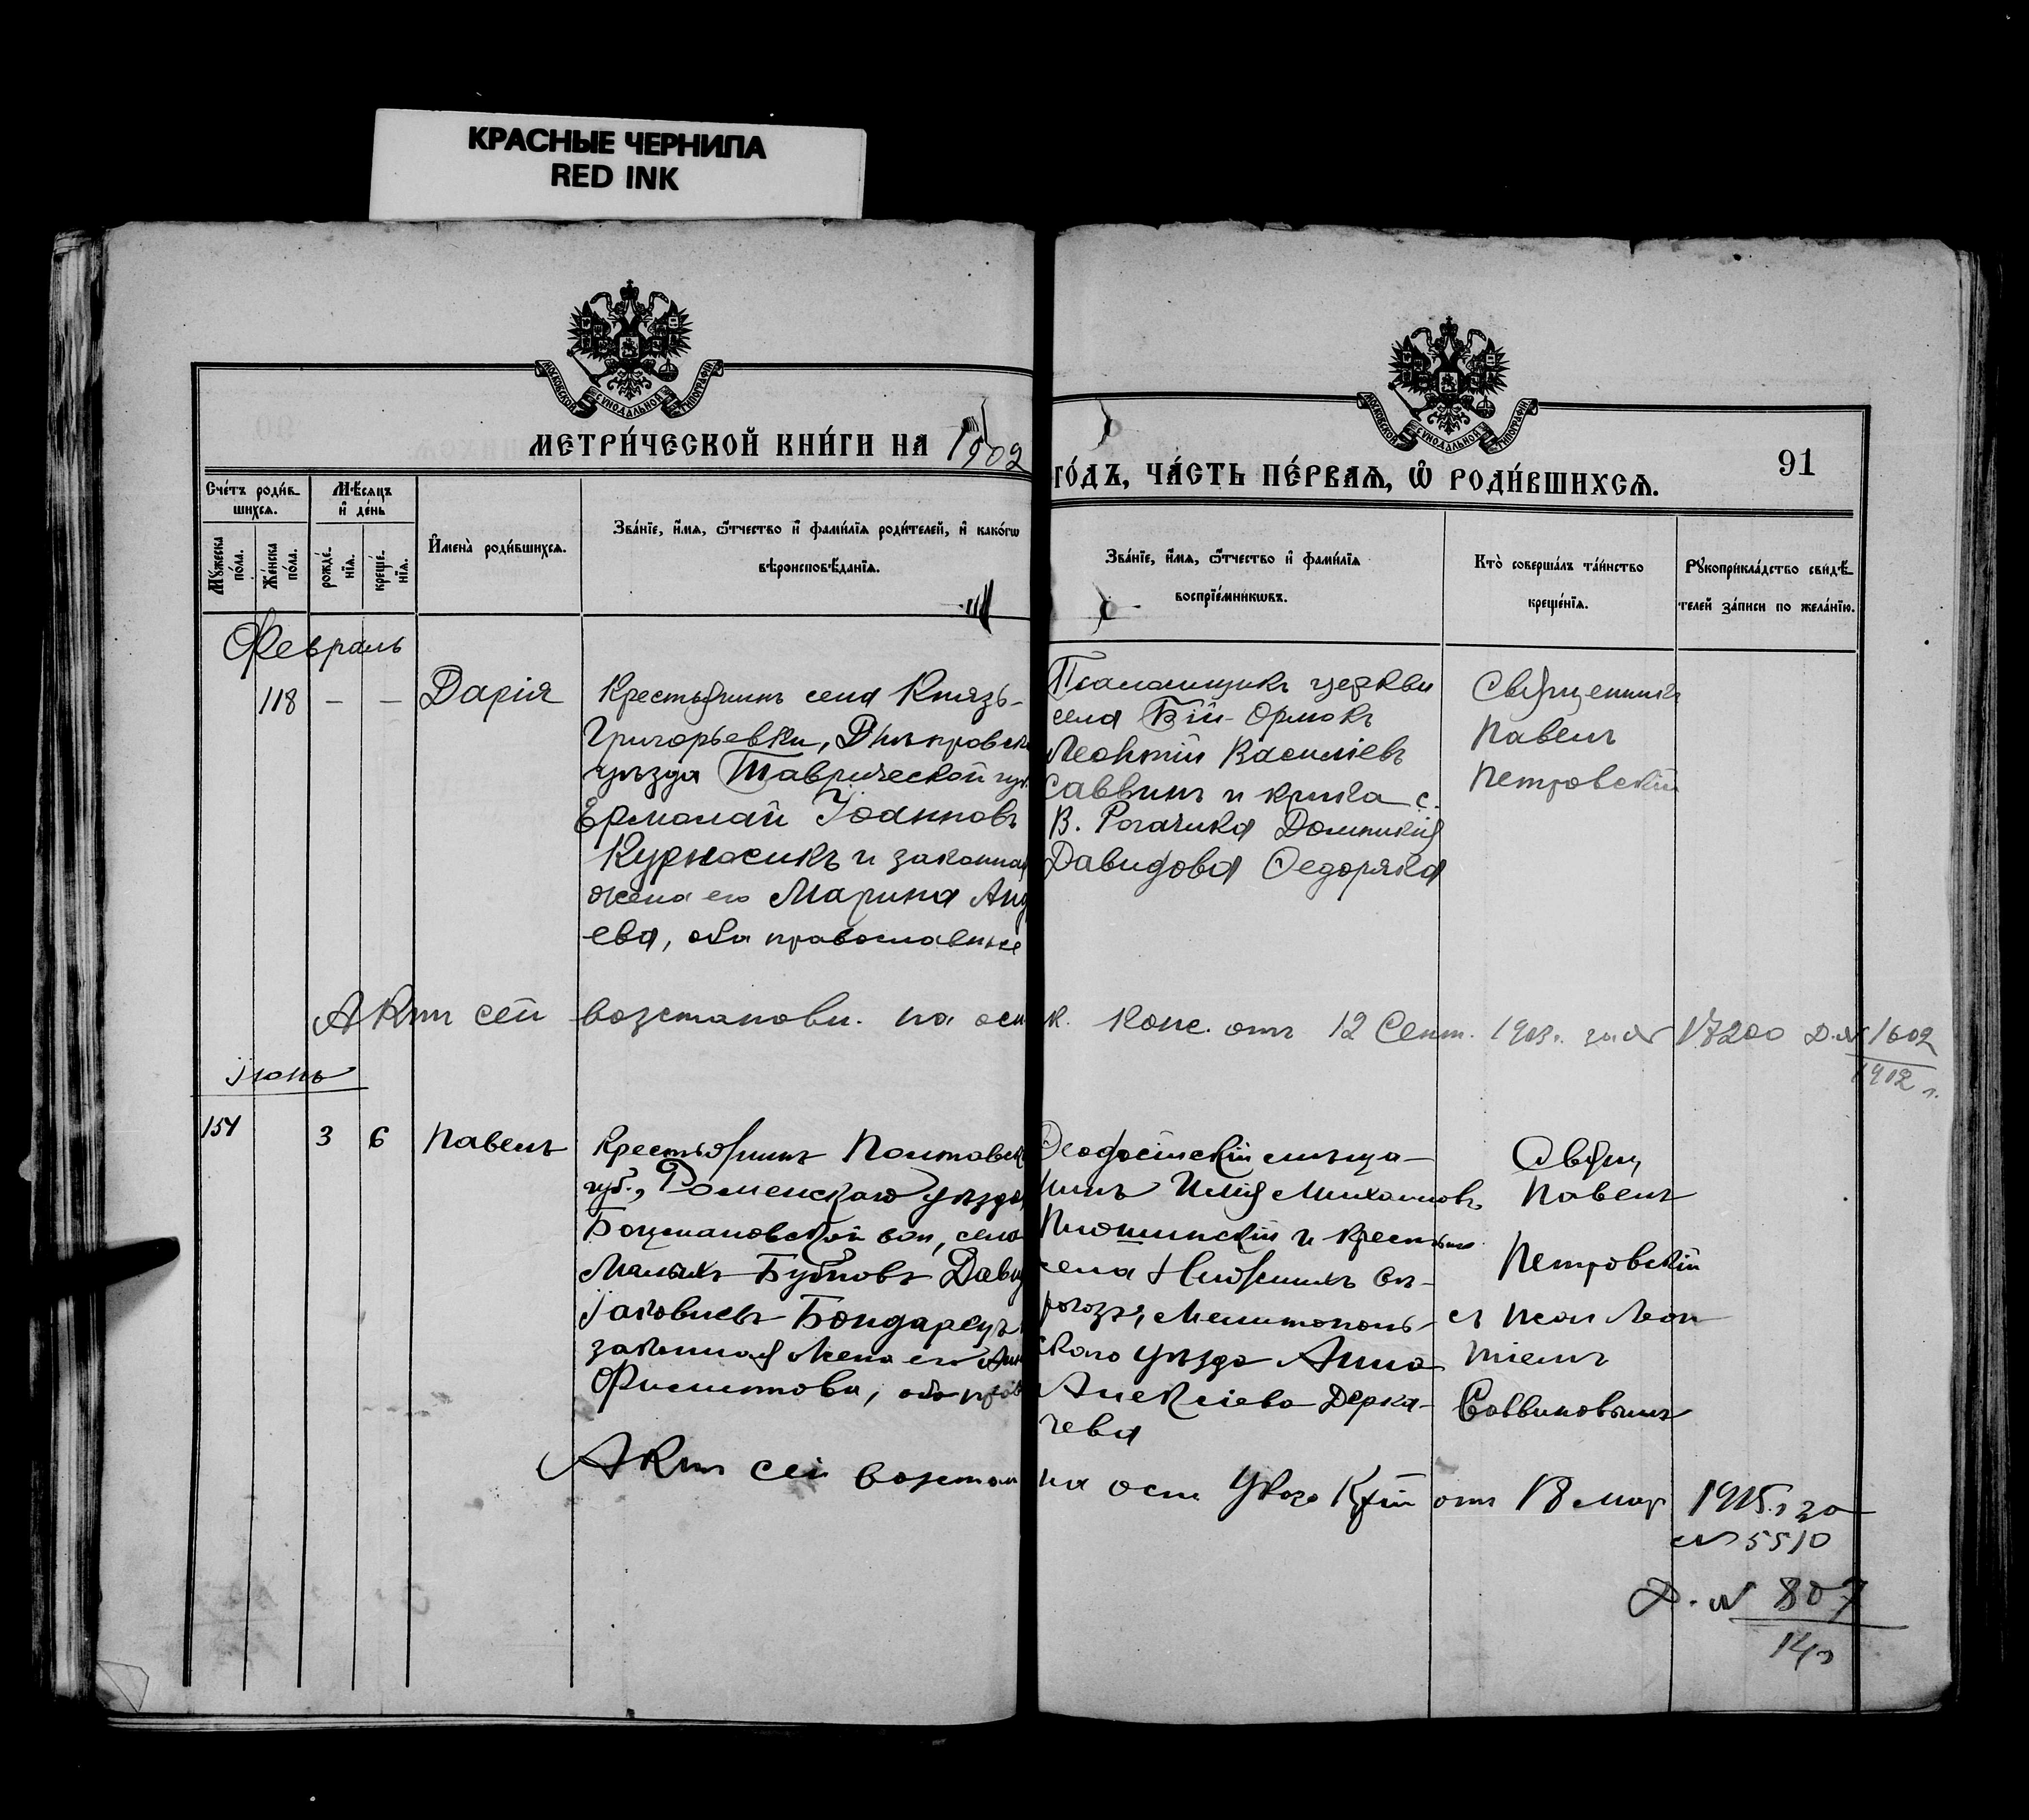 КРАСНЫЕ ЧЕРНИЛА
RED INK
МОСКОВСКОЙ СѴНОДАЛЬНОЙ ТИПОГРАФІИ
МОСКОВСКОЙ СѴНОДАЛЬНОЙ ТИПОГРАФІИ
МЕТРИ́ЧЕСКОЙ КНИ́ГИ НА 1902
ГО́ДЪ, ЧА́СТЬ ПЕ́РВАѦ, Ѿ РОДИ́ВШИХСѦ.
91
Сче́тъ роди́в-
шихсѧ.
Мѣ́сѧцъ
и҆ де́нь
Мꙋ́жеска
по́ла.
Же́нска
по́ла.
рожде́-
нїѧ.
креще́-
нїѧ.
И҆мена̀ роди́вшихсѧ.
Зва́нїе, и҆́мѧ, ѻ҆́тчество и҆ фами́лїѧ роди́телей, и҆ како́гѡ
вѣроисповѣ́данїѧ.
Зва́нїе, и҆́мѧ, ѻ҆́тчество и҆ фами́лїѧ
воспрїе́мникѡвъ.
Кто̀ соверша́лъ та́инство
креще́нїѧ.
Рꙋкоприкла́дство свидѣ́-
телей за́писи по жела́нїю.
Февраль
118 - - Дарія
Крестьянинъ села Князь-
Григорьевки, Днѣпровск
уѣзда Таврической губ.
Ермолай Іоанновъ
Курносикъ и законная
жена его Марина Анд
ева, оба православные
Псаломщикъ церкви
села Бій-Орлюкъ
Леонтій Василіевъ
Саввинъ и кр-нка с.
В. Рогачика Домникія
Давидова Федоряка
Священникъ
Павелъ
Петровскій
Актъ сей возстановл. на осн. к. конс. отъ 12 Сент. 1913 г. за № 17200 Д. № 1602
1912 г.
Іюнь
154 3 6 Павелъ
Крестьянинъ Полтавск
губ., Роменскаго уѣзда,
Боцмановской вол., села
Малыхъ Бубновъ Давид
Іаковлевъ Бондарецъ
законная жена его Анн
Филиппова, оба прав
Феодосійскій мѣща-
нинъ Илія Михаиловъ
Плошинскій и крестьян.
села Нижнихъ Сѣ-
рогозъ, Мелитополь-
скаго уѣзда Анна
Алексіева Держа-
чева
Свящ
Павелъ
Петровскій
съ псал Леон
тіемъ
Саввиновымъ
Актъ сей возстан на осн Указа Кхіи отъ 18 мар 1915 г за
№ 5510
Д. № 807
14 г